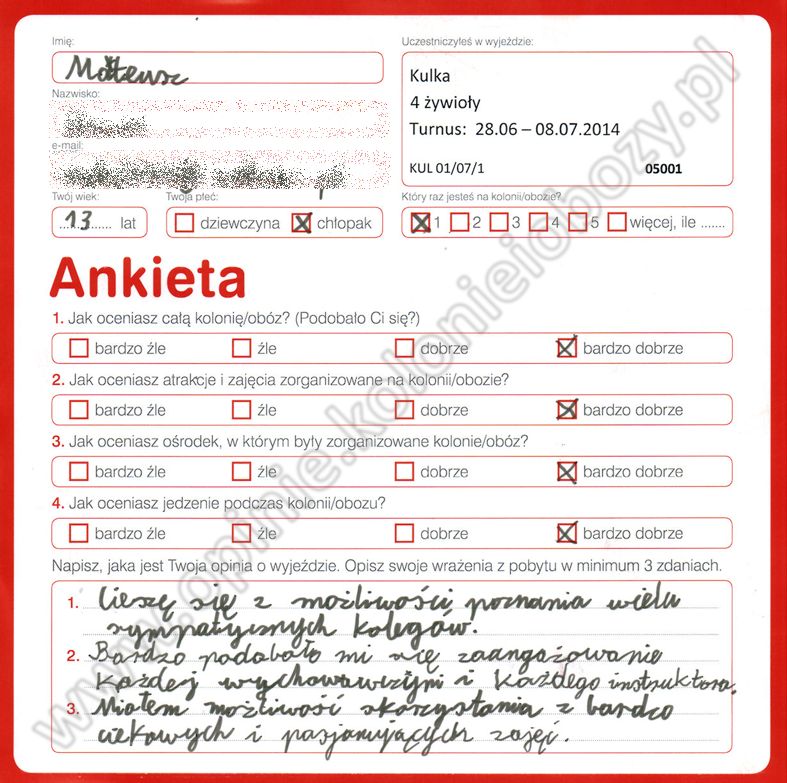 Imię:
Mateusz
Nazwisko:
e-mail:
Twój wiek:
13 lat
Twoja płeć:
dziewczyna chłopak
Uczestniczyłeś w wyjeździe:
Kulka
4 żywioły
Turnus: 28.06 – 08.07.2014
KUL 01/07/1 05001
Który raz jesteś na kolonii/obozie?
1 2 3 4 5 więcej, ile .......
Ankieta
1. Jak oceniasz całą kolonię/obóz? (Podobało Ci się?)
bardzo źle źle dobrze bardzo dobrze
2. Jak oceniasz atrakcje i zajęcia zorganizowane na kolonii/obozie?
bardzo źle źle dobrze bardzo dobrze
3. Jak oceniasz ośrodek, w którym były zorganizowane kolonie/obóz?
bardzo źle źle dobrze bardzo dobrze
4. Jak oceniasz jedzenie podczas kolonii/obozu?
bardzo źle źle dobrze bardzo dobrze
Napisz, jaka jest Twoja opinia o wyjeździe. Opisz swoje wrażenia z pobytu w minimum 3 zdaniach.
1. Cieszę się z możliwości poznania wielu
sympatycznych kolegów.
2. Bardzo podobało mi się zaangażowanie
każdej wychowawczyni i każdego instruktora.
3. Miałem możliwość skorzystania z bardzo
ciekawych i pasjonujących zajęć.
www.opinie.kolonieiobozy.pl